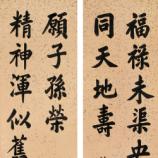 福祿未渠央
同天地壽
願子孫榮
精神渾似舊